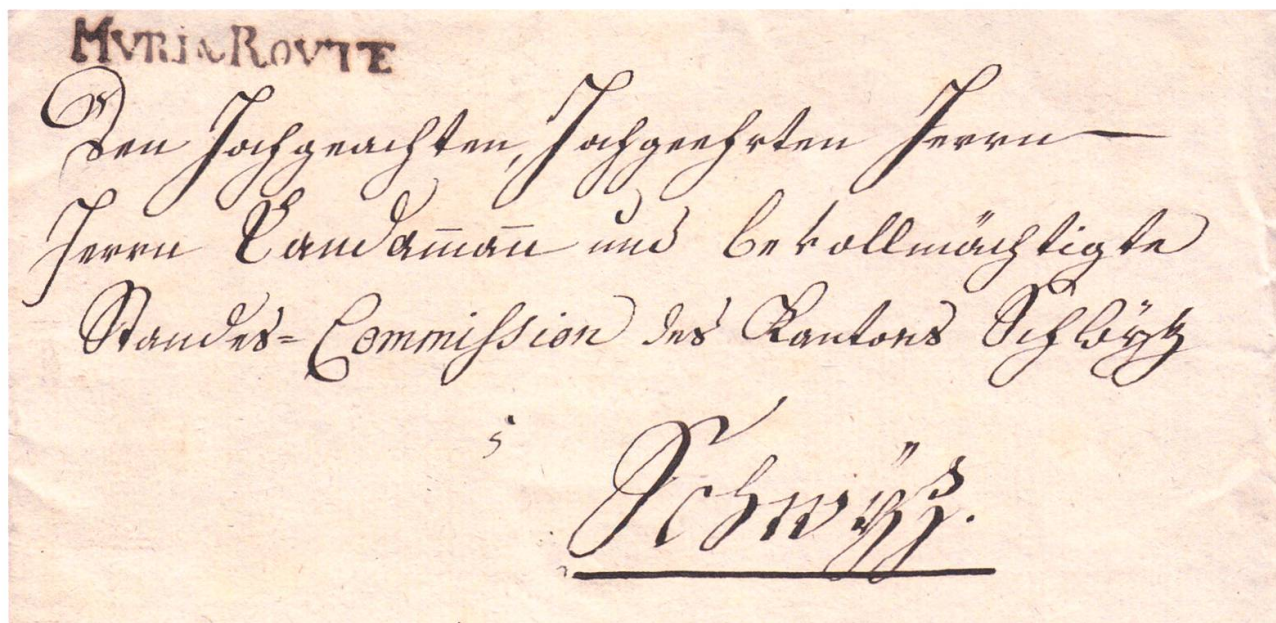 MVRI.&ROVTE
Den Hochgeachten, Hochgeehrten Herrn
Herrn Landam̄an̄ und bevollmächtigte
Standes= Commission des Kantons Schwÿtz
5
Schwÿz.